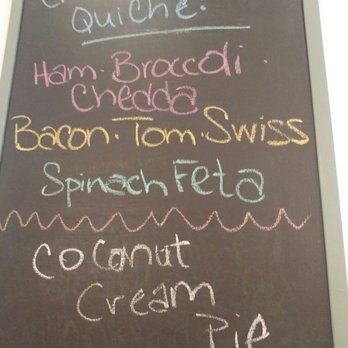 Quiche.
Ham · Broccoli ·
Chedda
Bacon · Tom · Swiss
Spinach Feta
Coconut
Cream
Pie